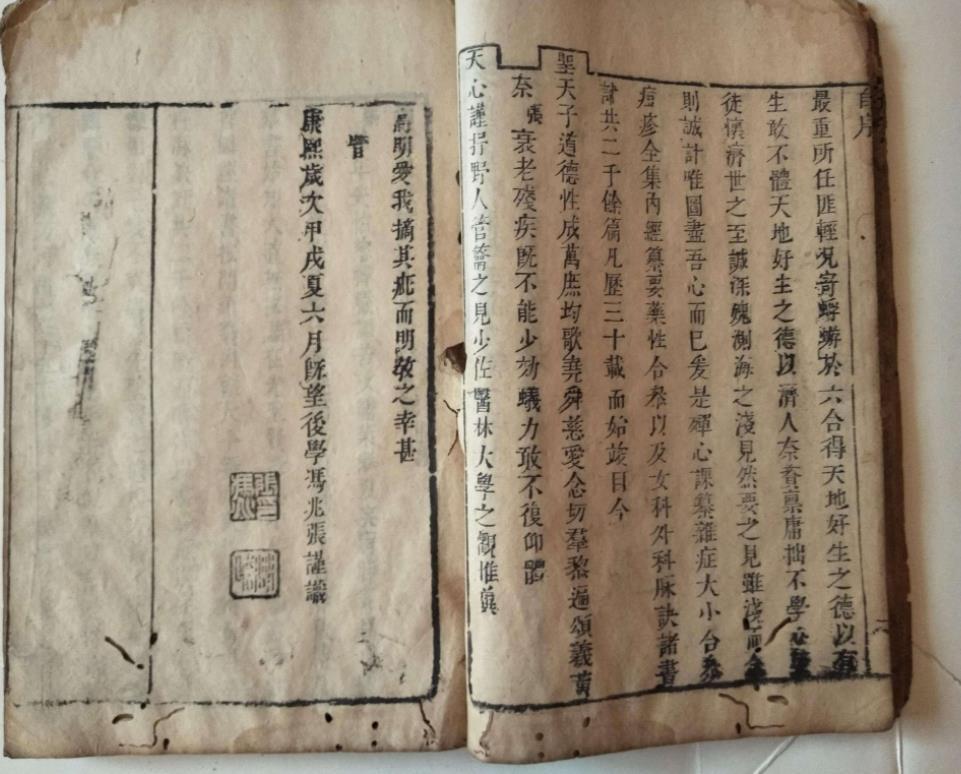 自序
最重所任匪輕況寄蜉蝣於六合得天地好生之德以有
生敢不體天地好生之德以濟人奈資禀庸拙不學心
徒慎濟世之至誠深愧測海之淺見然要之見雖淺而
則誠計唯圖盡吾心而已爰是殫心課纂雜症大小合參
痘疹全集內經纂要藥性合參以及女科外科脉訣諸書
計共二千餘篇凡歷三十載而始竣目今
聖天子道德性成萬庶均歌堯舜慈愛念切羣黎遍頌羲黄
奈張衰老殘疾既不能少効蟻力敢不復仰體
天心謹抒野人管籥之見少佐醫林大學之觀惟冀
高明愛我摘其疵而明敎之幸甚
旹
康熙歲次甲戌夏六月旣望後學馮兆張謹識